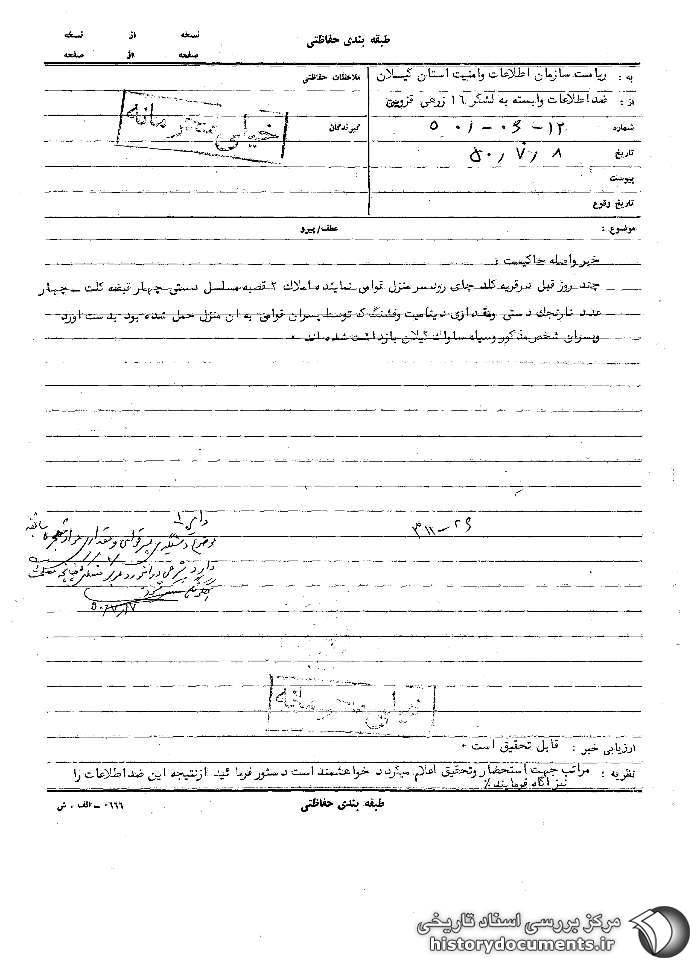 طبقه بندی حفاظتی
نسخه از نسخه
صفحه از صفحه
به : ریاست سازمان اطلاعات وامنیت استان گیلان
از : ضد اطلاعات وابسته به لشگر ۱۶ زرهی قزوین
شماره ۱۲-۰۶-۵۰۱
تاریخ ۵۰/۷/۸
پیوست
تاریخ وقوع
ملاحظات حفاظتی
گیرندگان
خیلی محرمانه
موضوع :
عطف/پیرو
خبر واصله حاکیست :
چند روز قبل در قریه کلد چای رودسر منزل قوامی نماینده املاک ۲ قبضه مسلسل دستی چهار قبضه کلت - چهار
عدد نارنجک دستی ومقداری دینامیت وفشنگ که توسط پسران قوامی به ان منزل حمل شده بود بدست اورد
وپسران شخص مذکور وسیله ساواک گیلان بازداشت شده اند ۰
۲۶-۳۱۱
موضوع دستگیری پسر قوامی و مقداری مواد منفجره
۵۰/۷/۱۷
خیلی محرمانه
ارزیابی خبر : قابل تحقیق است ۰
نظریه : مراتب جهت استحضار وتحقیق اعلام میگردد خواهشمند است دستور فرمائید ازنتیجه این ضد اطلاعات را
نیز اگاه فرمایند٪
طبقه بندی حفاظتی
۰۶۶۶ - الف ۰ ش
مرکز بررسی اسناد تاریخی
historydocuments.ir